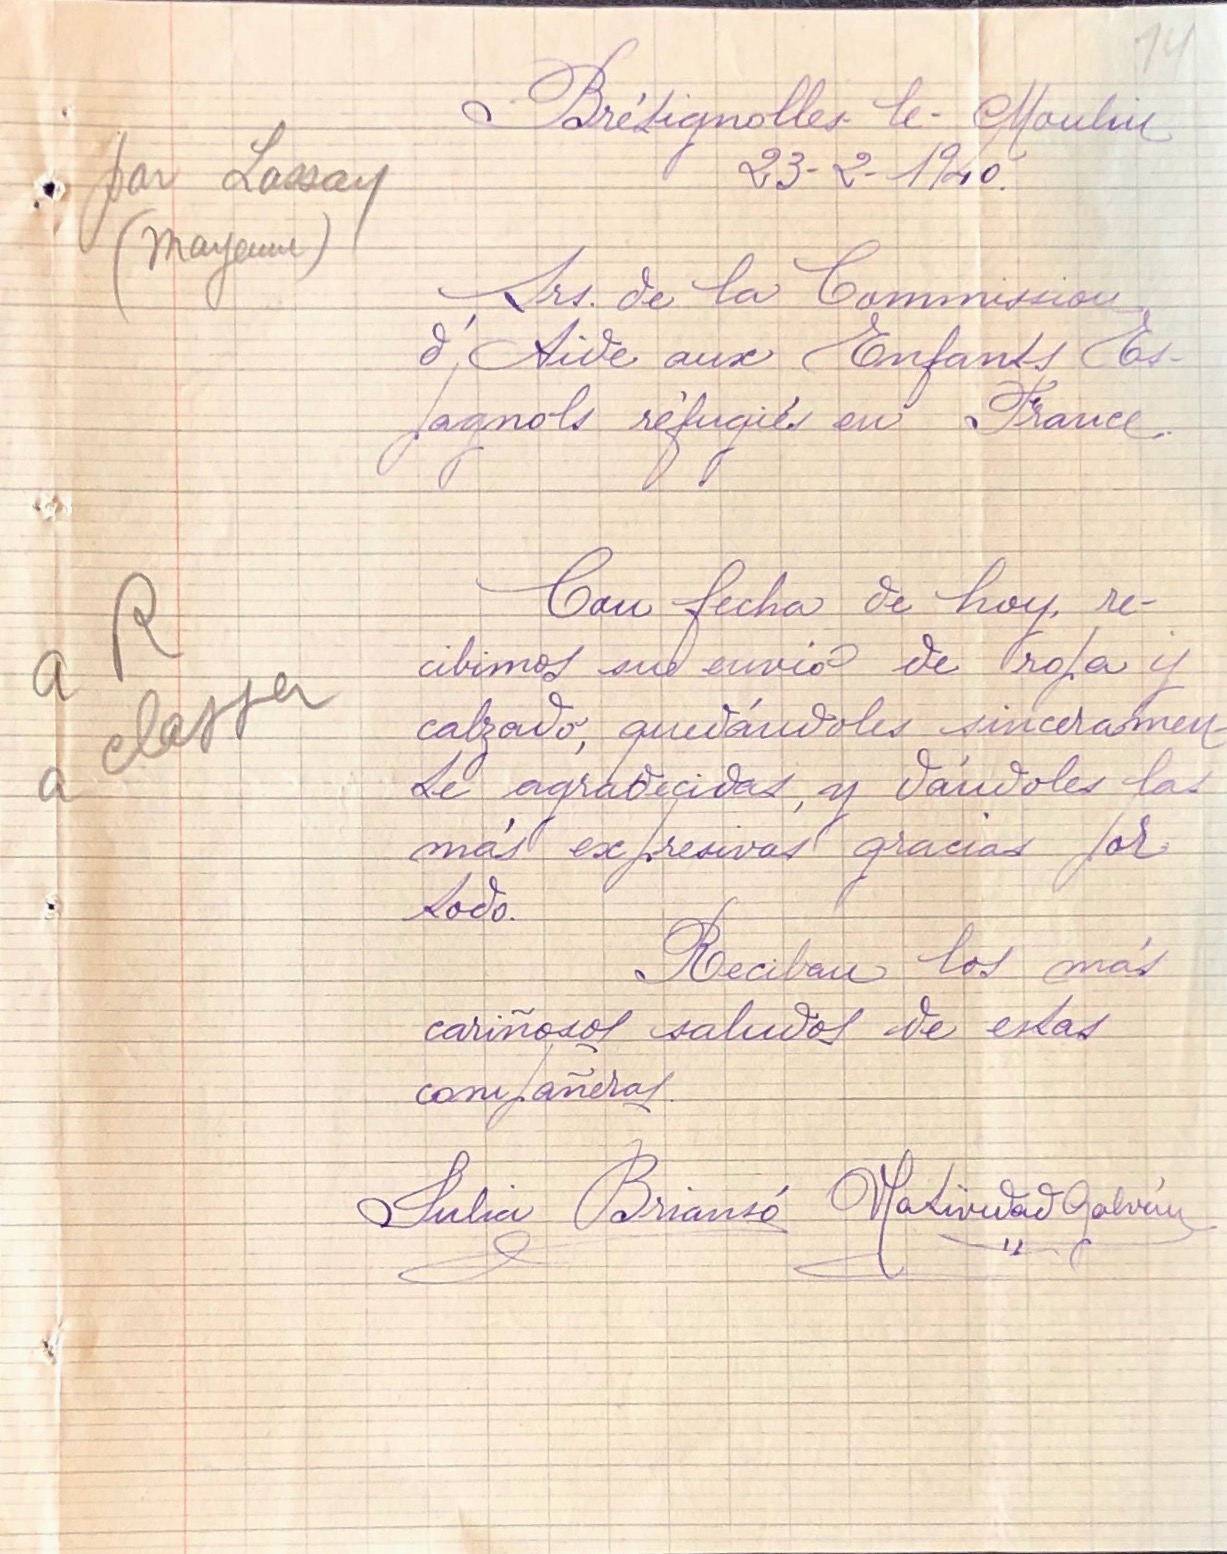 14
Brétignolles-le-Moulin
23-2-1940.
par Lassay
(Mayenne)
Srs. de la Commission
d'Aide aux Enfants Es-
pagnols réfugiés en France.
Con fecha de hoy, re-
cibimos su envió de ropa y
calzado, quedándoles sinceramen
te agradecidas, y dándoles las
más expresivas gracias por
todo.
a R
a classer
Reciban los más
cariñosos saludos de estas
compañeras.
Julia Briansó Natividad Galván